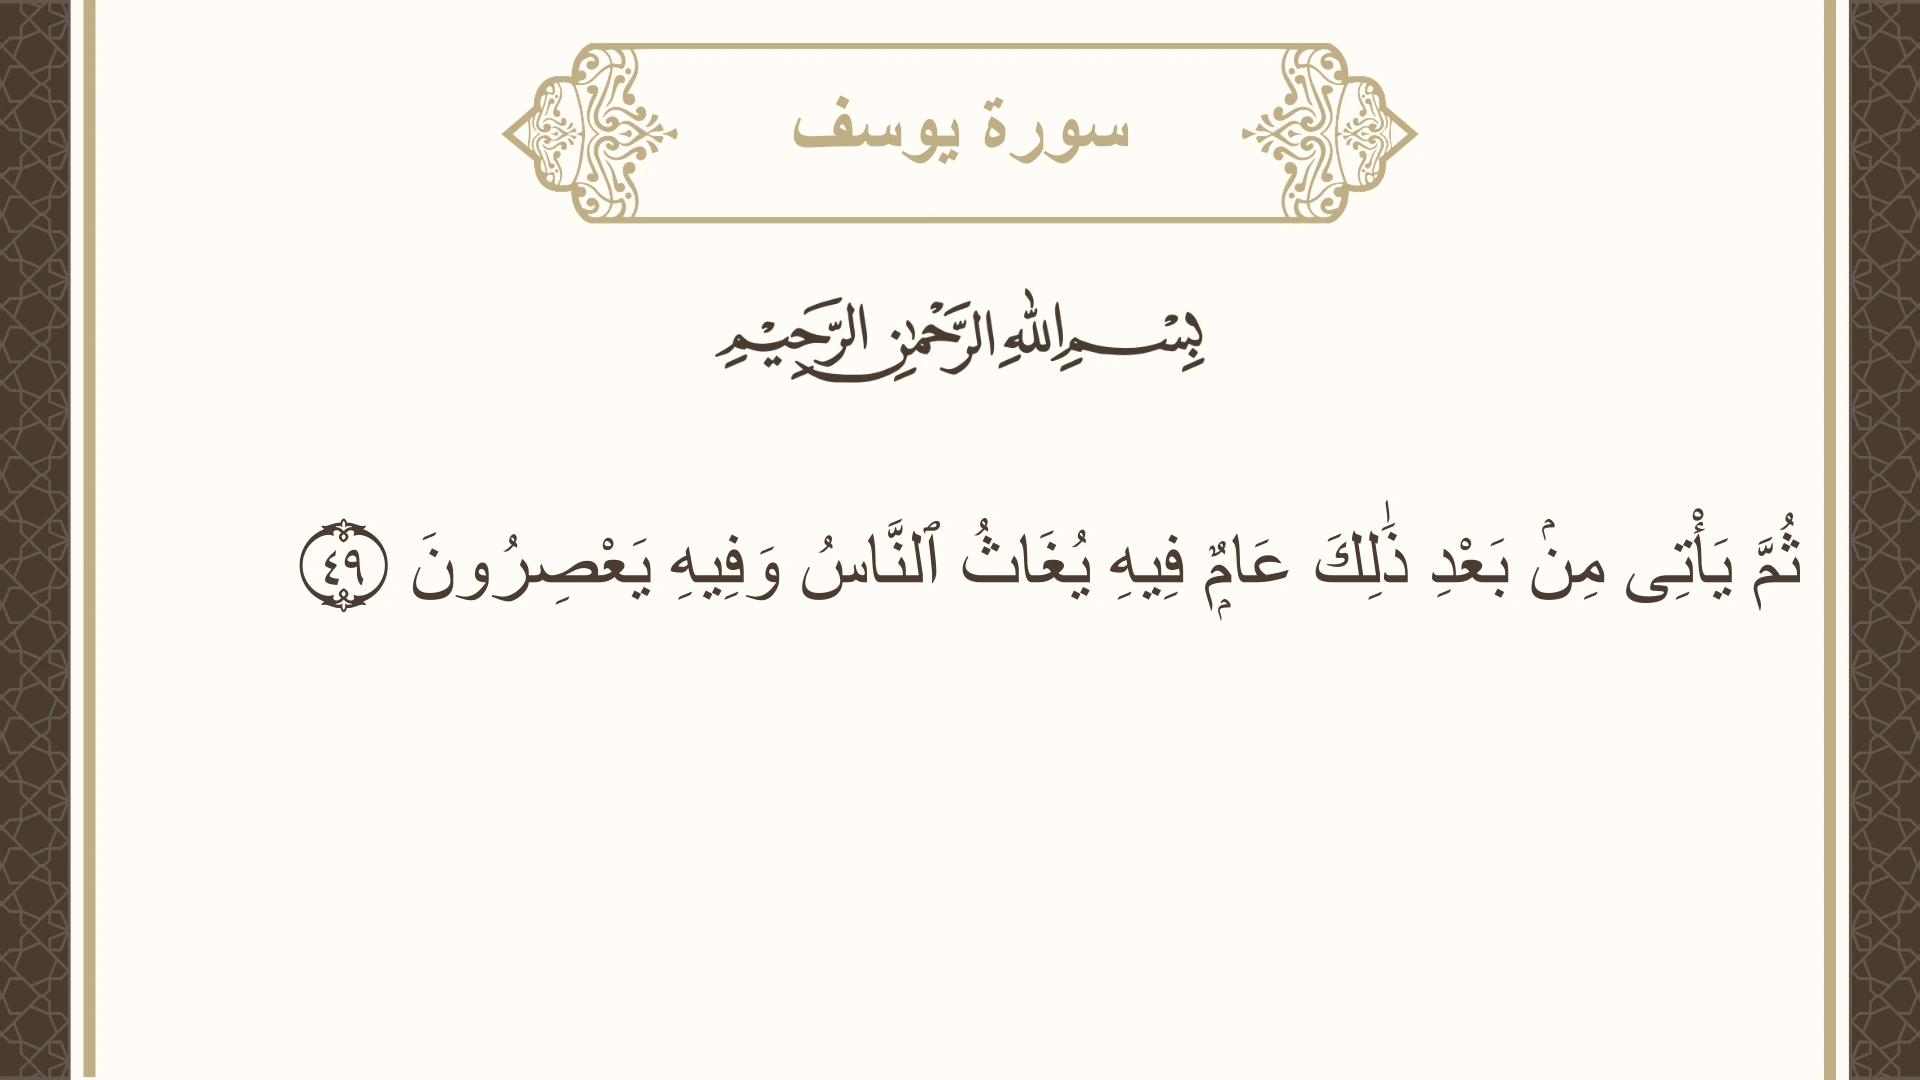 سورة يوسف
بِسْمِ اللهِ الرَّحْمٰنِ الرَّحِيْمِ
ثُمَّ يَأْتِى مِنۢ بَعْدِ ذَٰلِكَ عَامٌۭ فِيهِ يُغَاثُ ٱلنَّاسُ وَفِيهِ يَعْصِرُونَ ٤٩